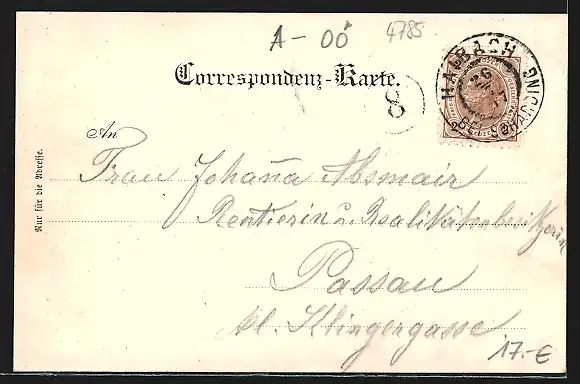 A-00
4785
Correspondenz-Karte.
8
HAIBACH
BEI SCHÄRDING
An
Frau Johanna Absmair
Rentierin u. Realitätenbesitzerin
Passau
kl. Klingergasse
Nur für die Adresse.
17.-€